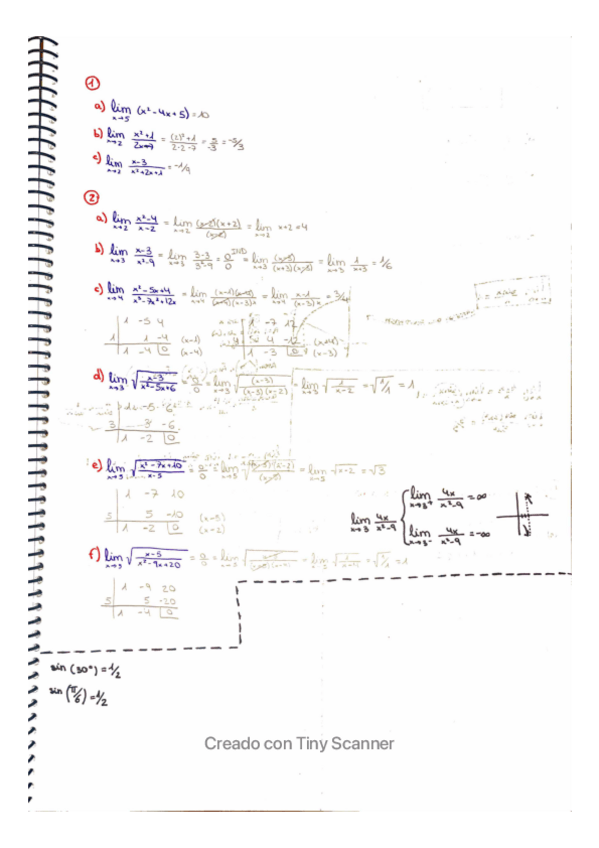 1
a) lim x→5 (x²-4x+5) = 10
b) lim x→2 x²+1 / 2x-7 = (2)²+1 / 2·2-7 = 5/-3 = -5/3
c) lim x→2 x-3 / x²+2x+1 = -1/9
2
a) lim x→2 x²-4 / x-2 = lim x→2 (x-2)(x+2) / (x-2) = lim x→2 x+2 = 4
b) lim x→3 x-3 / x²-9 = lim x→3 3-3 / 3²-9 = 0/0 IND = lim x→3 (x-3) / (x+3)(x-3) = lim x→3 1 / x+3 = 1/6
c) lim x→4 x²-5x+4 / x³-7x²+12x = lim x→4 = lim x→4 = 3/4
1 -5 4
1 1 -4 (x-1)
1 -4 0 (x-4)
1 -7 12
4 4 -12 (x-4)
1 -3 0 (x-3)
d) lim x→3 √ x-3 / x²-5x+6 = 0/0 = lim x→3 √ (x-3) / (x-3)(x-2) = lim x→3 √ 1 / x-2 = √ 1/1 = 1
1 -5 6
3 3 -6
1 -2 0
e) lim x→5 √ x²-7x+10 / x-5 = 0/0 = lim x→5 √ (x-5)(x-2) / (x-5) = lim x→5 √ x-2 = √3
1 -7 10
5 5 -10 (x-5)
1 -2 0 (x-2)
lim x→3 4x / x²-9
lim x→3⁺ 4x / x²-9 = ∞
lim x→3⁻ 4x / x²-9 = -∞
f) lim x→5 √ x-5 / x²-9x+20 = 0/0 = lim x→5 = lim x→5 = √ 1/1 = 1
1 -9 20
5 5 -20
1 -4 0
sin (30°) = 1/2
sin (π/6) = 1/2
Creado con Tiny Scanner